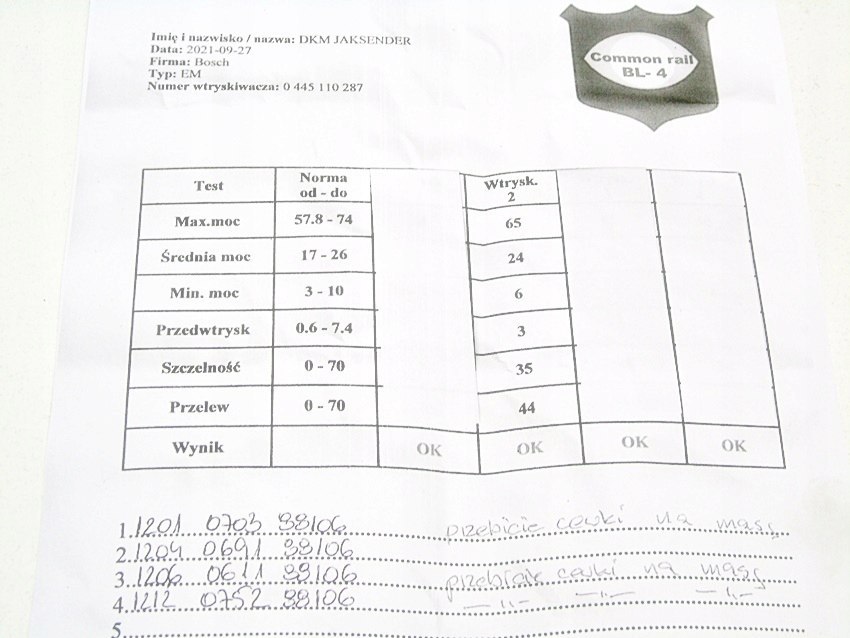 Imię i nazwisko / nazwa: DKM JAKSENDER
Data: 2021-09-27
Firma: Bosch
Typ: EM
Numer wtryskiwacza: 0 445 110 287
Common rail
BL- 4
Test Norma od - do Wtrysk. 2
Max.moc 57.8 - 74 65
Średnia moc 17 - 26 24
Min. moc 3 - 10 6
Przedwtrysk 0.6 - 7.4 3
Szczelność 0 - 70 35
Przelew 0 - 70 44
Wynik OK OK OK OK
1. 1201 0703 98106 przebicie cewki na masę
2. 1204 0691 98106
3. 1206 0611 98106 przebicie cewki na masę
4. 1212 0752 98106 —,,— —,,— —,,—
5.